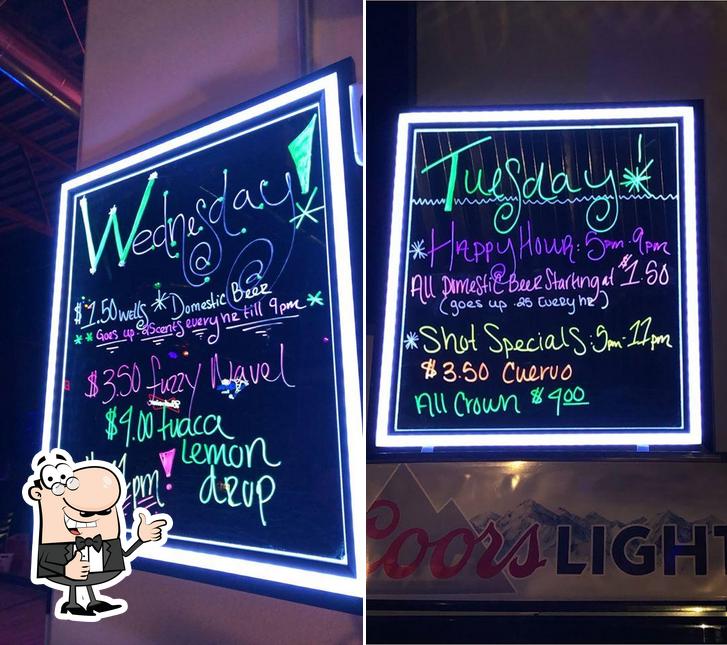 Wednesday!
$1.50 wells * Domestic Beer *
** Goes up .25cents every hr till 9pm
$3.50 fuzzy Navel
$4.00 tuaca
Lemon
drop
pm!
Tuesday!
* Happy Hour: 5pm-9pm
All Domestic Beer Starting at $1.50
(goes up .25 Every hr)
* Shot Specials: 5pm-11pm
$3.50 Cuervo
All Crown $4.00
Coors LIGHT